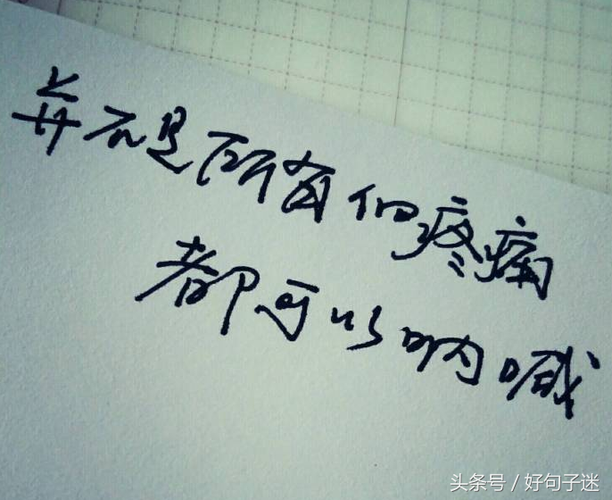 并不是所有的疼痛
都可以呐喊
头条号／好句子迷